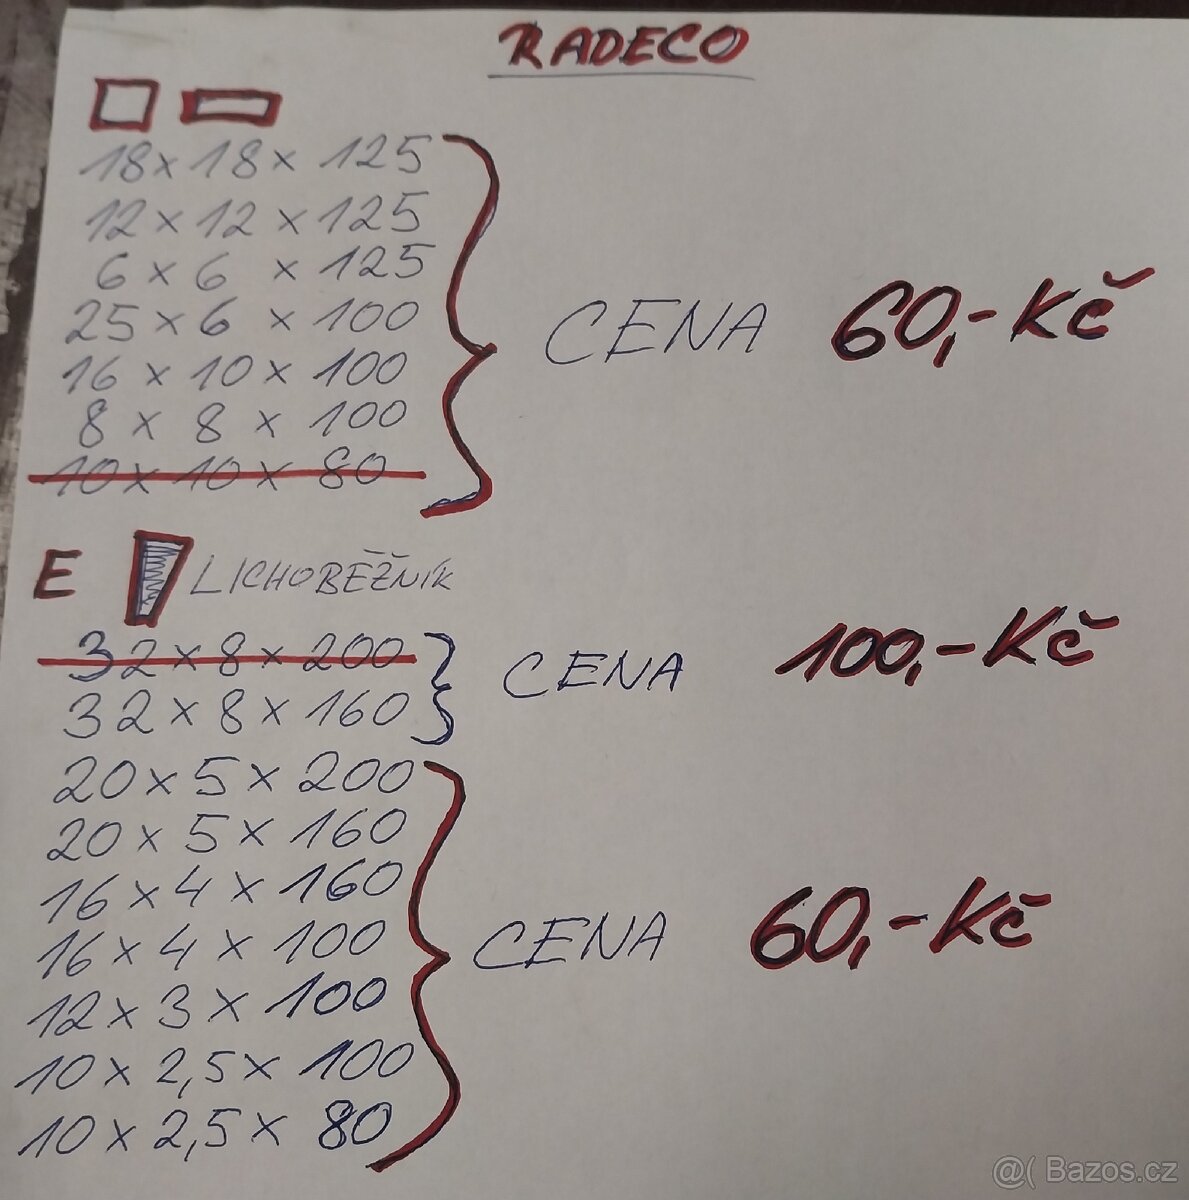 RADECO
18 x 18 x 125
12 x 12 x 125
6 x 6 x 125
25 x 6 x 100
16 x 10 x 100
8 x 8 x 100
10 x 10 x 80
CENA 60,- Kč
E LICHOBĚŽNÍK
32 x 8 x 200
32 x 8 x 160
CENA 100,- Kč
20 x 5 x 200
20 x 5 x 160
16 x 4 x 160
16 x 4 x 100
12 x 3 x 100
10 x 2,5 x 100
10 x 2,5 x 80
CENA 60,- Kč
@( Bazos.cz